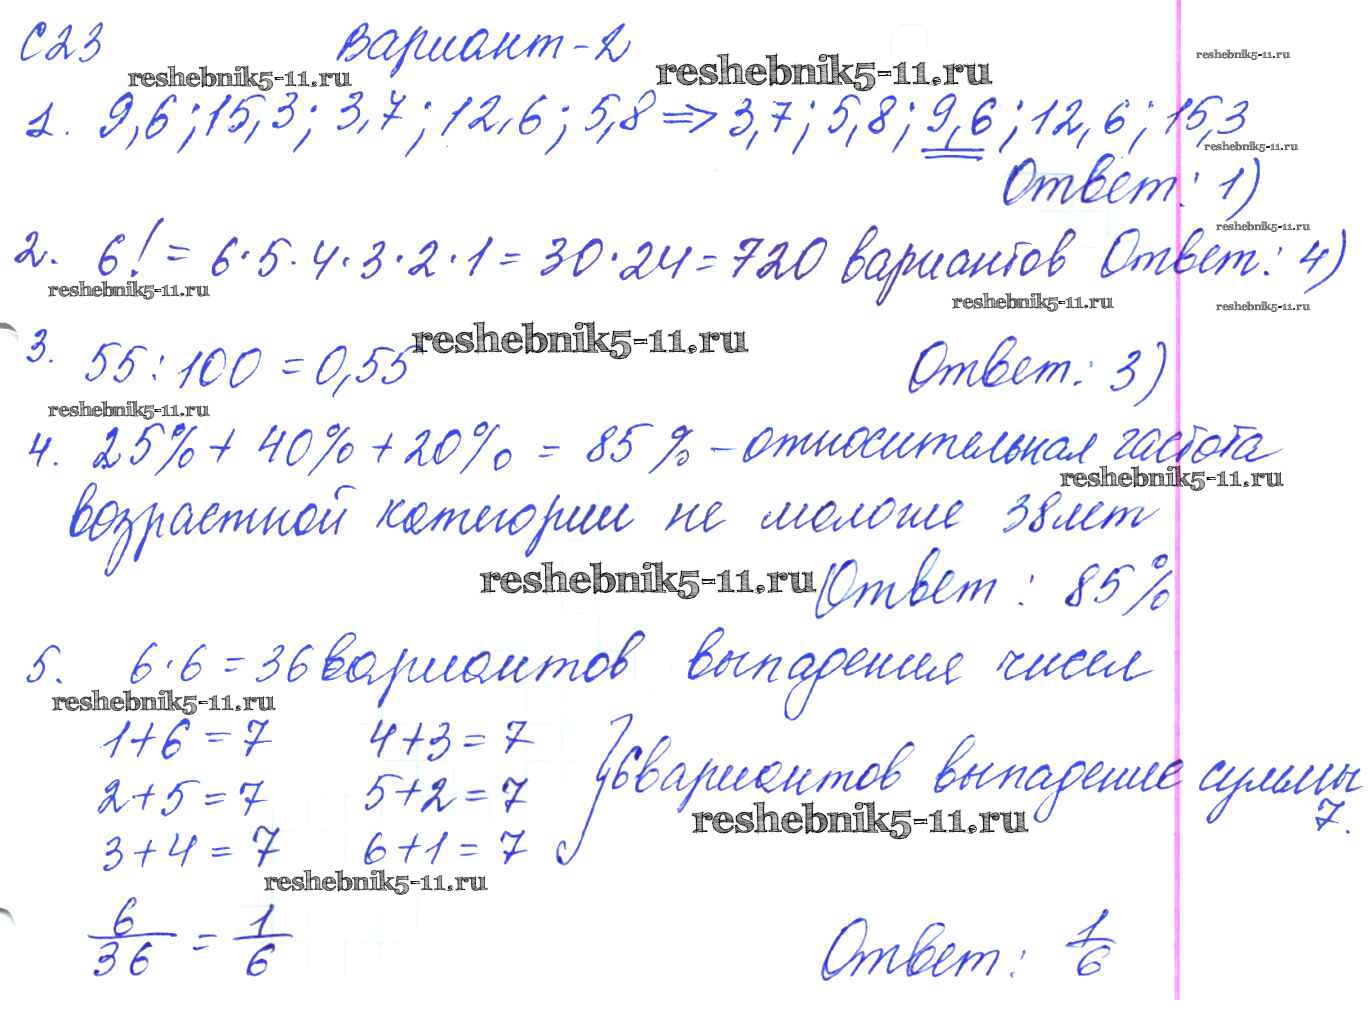 С23 Вариант-2
reshebnik5-11.ru reshebnik5-11.ru reshebnik5-11.ru
1. 9,6; 15,3; 3,7; 12,6; 5,8 => 3,7; 5,8; 9,6; 12,6; 15,3
reshebnik5-11.ru
Ответ: 1)
reshebnik5-11.ru
2. 6! = 6·5·4·3·2·1 = 30·24 = 720 вариантов Ответ: 4)
reshebnik5-11.ru reshebnik5-11.ru reshebnik5-11.ru
reshebnik5-11.ru
3. 55:100 = 0,55 Ответ: 3)
reshebnik5-11.ru
4. 25% + 40% + 20% = 85% - относительная частота
reshebnik5-11.ru
возрастной категории не моложе 38 лет
reshebnik5-11.ru
Ответ: 85%
5. 6·6 = 36 вариантов выпадения чисел
reshebnik5-11.ru
1+6=7 4+3=7
2+5=7 5+2=7 } 6 вариантов выпадение суммы
reshebnik5-11.ru 7.
3+4=7 6+1=7
reshebnik5-11.ru
6/36 = 1/6 Ответ: 1/6